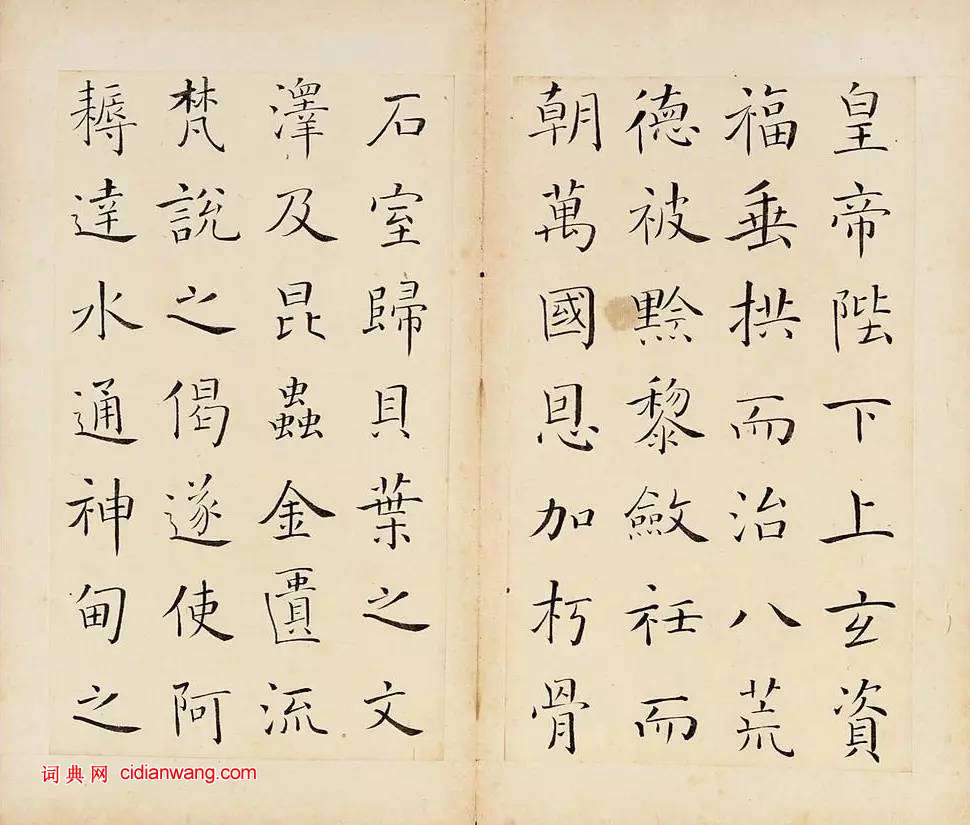 皇帝陛下上玄資
福垂拱而治八荒
德被黔黎斂衽而
朝萬國恩加朽骨
石室歸貝葉之文
澤及昆蟲金匱流
梵說之偈遂使阿
耨達水通神甸之
词典网 cidianwang.com